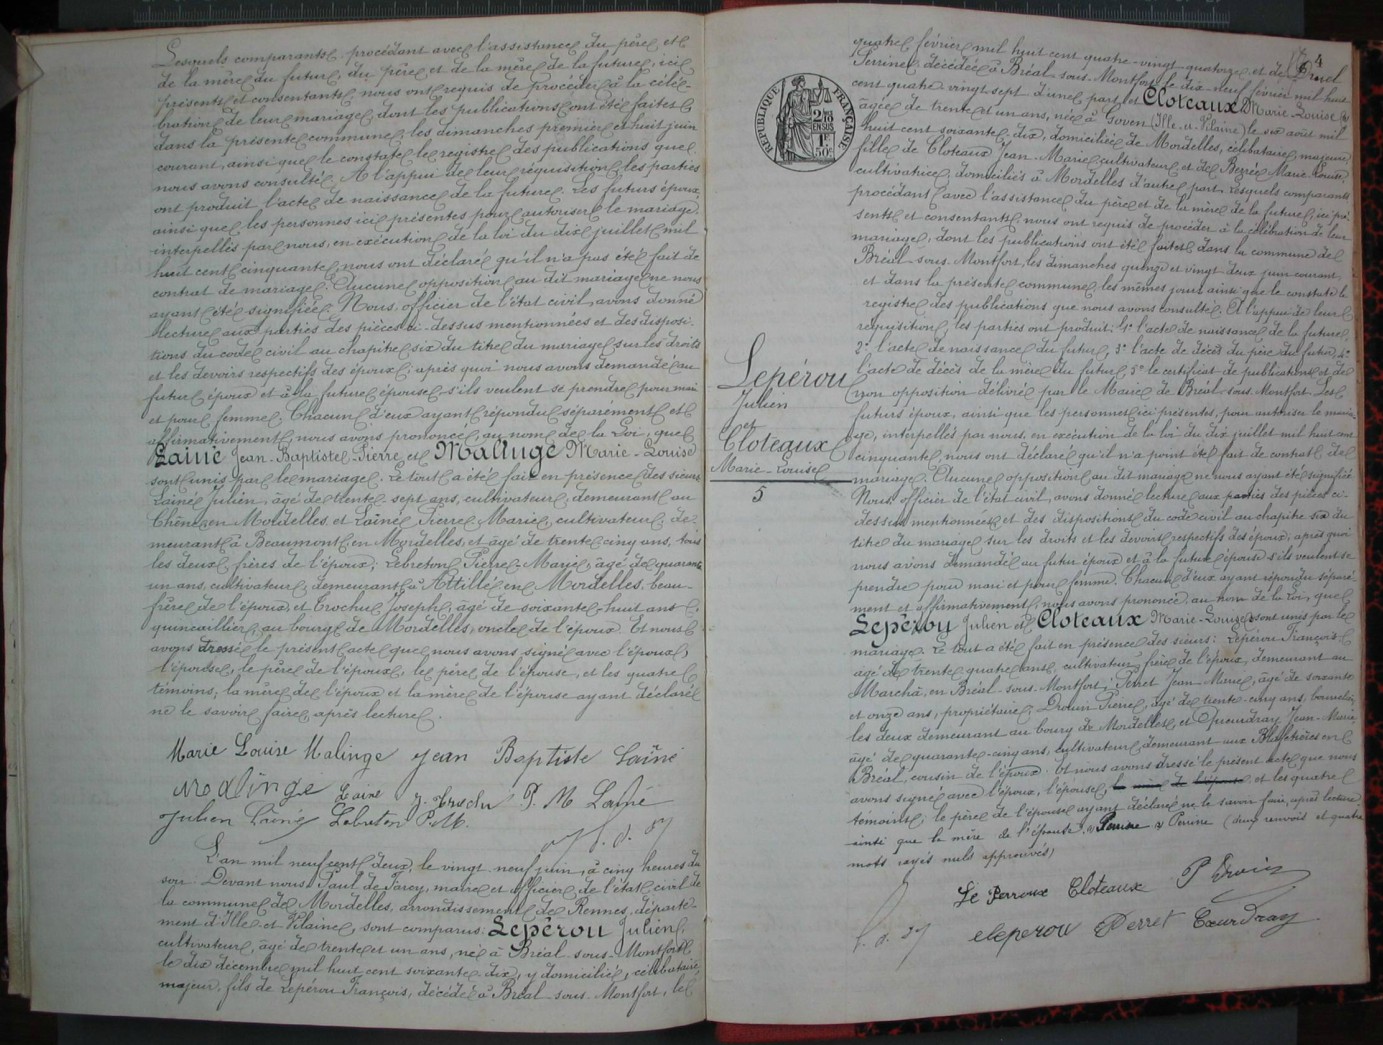 Lesquels comparants procédant avec l'assistance du père et
de la mère du futur, du père et de la mère de la future, ici
présents et consentants, nous ont requis de procéder à la célé-
bration de leur mariage, dont les publications ont été faites
dans la présente commune, les dimanches premier et huit juin
courant, ainsi que le constate le registre des publications que
nous avons consulté. A l'appui de leur réquisition, les parties
ont produit l'acte de naissance de la future. Les futurs époux
ainsi que les personnes ici présentes pour autoriser le mariage,
interpellés par nous, en exécution de la loi du dix juillet mil
huit cent cinquante, nous ont déclaré qu'il n'a pas été fait de
contrat de mariage. Aucune opposition au dit mariage ne nous
ayant été signifiée. Nous, officier de l'état civil, avons donné
lecture aux parties des pièces ci-dessus mentionnées et des disposi-
tions du code civil au chapitre six du titre du mariage sur les droits
et les devoirs respectifs des époux, après quoi nous avons demandé au
futur époux et à la future épouse s'ils veulent se prendre pour mari
et pour femme. Chacun d'eux ayant répondu séparément et
affirmativement, nous avons prononcé, au nom de la Loi, que
Lainé Jean-Baptiste-Pierre et Malinge Marie-Louise
sont unis par le mariage. Le tout a été fait en présence des sieurs
Lainé Julien, âgé de trente-sept ans, cultivateur, demeurant au
Chêne en Mordelles, et Lainé Pierre Marie, cultivateur, de-
meurant à Beaumont en Mordelles, et âgé de trente cinq ans, tous
les deux frères de l'époux; Lebreton Pierre-Marie, âgé de quarante
un ans, cultivateur, demeurant à Attillé en Mordelles, beau-
frère de l'époux, et Trochu Joseph, âgé de soixante-huit ans,
quincaillier, au bourg de Mordelles, oncle de l'époux. Et nous
avons dressé le présent acte que nous avons signé avec l'époux,
l'épouse, le père de l'époux, le père de l'épouse, et les quatre
témoins; la mère de l'époux et la mère de l'épouse ayant déclaré
ne le savoir faire, après lecture.
Marie Louise Malinge Jean Baptiste Lainé
Malinge Lainé J. Trochu P. M. Lainé
Julien Lainé Lebreton P. M.
L'an mil neuf cent deux, le vingt neuf juin, à cinq heures du
soir. Devant nous Paul de Farcy, maire et officier de l'état civil de
la commune de Mordelles, arrondissement de Rennes, départe-
ment d'Ille-et-Vilaine, sont comparus: Lepérou Julien,
cultivateur, âgé de trente et un ans, né à Bréal-sous-Montfort
le dix décembre mil huit cent soixante-dix, y domicilié, célibataire
majeur, fils de Lepérou François, décédé à Bréal-sous-Montfort, le
4
quatre février mil huit cent quatre-vingt-quatorze, et de
Perrine, décédée à Bréal-sous-Montfort le dix neuf février mil huit
cent quatre vingt sept d'une part, et Cloteaux Marie-Louise
âgée de trente et un ans, née à Goven (Ille-et-Vilaine) le six août mil
huit cent soixante-dix, domiciliée de Mordelles, célibataire, majeure,
fille de Cloteaux Jean-Marie, cultivateur, et de Marie-Louise,
cultivatrice, domiciliés à Mordelles d'autre part. Lesquels comparants
procédant avec l'assistance du père et de la mère de la future, ici pré-
sents et consentants, nous ont requis de procéder à la célébration de leur
mariage, dont les publications ont été faites dans la commune de
Bréal-sous-Montfort, les dimanches quinze et vingt deux juin courant,
et dans la présente commune, les mêmes jours ainsi que le constate le
registre des publications que nous avons consulté. A l'appui de leur
réquisition, les parties ont produit: 1° l'acte de naissance de la future,
2° l'acte de naissance du futur, 3° l'acte de décès du père du futur, 4°
l'acte de décès de la mère du futur, 5° le certificat de publication et de
non opposition délivré par le Maire de Bréal-sous-Montfort. Les
futurs époux, ainsi que les personnes ici présentes, pour autoriser le maria-
ge, interpellés par nous, en exécution de la loi du dix juillet mil huit cent
cinquante, nous ont déclaré qu'il n'a point été fait de contrat de
mariage. Aucune opposition au dit mariage ne nous ayant été signifiée
Nous, officier de l'état civil, avons donné lecture aux parties des pièces ci-
dessus mentionnées et des dispositions du code civil au chapitre six du
titre du mariage sur les droits et les devoirs respectifs des époux, après quoi
nous avons demandé au futur époux et à la future épouse s'ils veulent se
prendre pour mari et pour femme. Chacun d'eux ayant répondu séparé-
ment et affirmativement, nous avons prononcé, au nom de la Loi, que
Lepérou Julien et Cloteaux Marie-Louise sont unis par le
mariage. Le tout a été fait en présence des sieurs: Lepérou François
âgé de trente quatre ans, cultivateur, frère de l'époux, demeurant au
Marchâ, en Bréal-sous-Montfort; Perret Jean Marie, âgé de soixante
et onze ans, propriétaire, Drouin Pierre, âgé de trente-cinq ans,
les deux demeurant au bourg de Mordelles, et Jean-Marie
âgé de quarante-cinq ans, cultivateur, demeurant aux en
Bréal, cousin de l'époux. Et nous avons dressé le présent acte que nous
avons signé avec l'époux, l'épouse, et les quatre
témoins; le père de l'épouse ayant déclaré ne le savoir faire, après lecture
ainsi que la mère de l'épouse. Perrine (deux renvois et quatre
mots rayés nuls approuvés)
Le Perroux Cloteaux P Drouin
Leperou Perret
RÉPUBLIQUE FRANÇAISE
Lepérou
Julien
et
Cloteaux
Marie-Louise
5